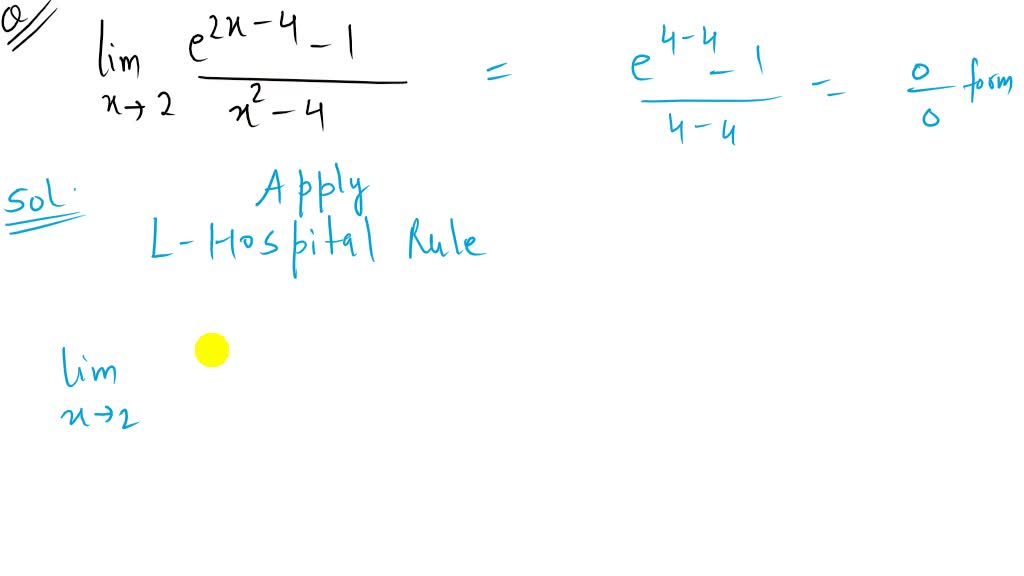 Q
lim x→2 (e^(2x-4) - 1)/(x² - 4) = (e^(4-4) - 1)/(4-4) = 0/0 form
Sol.
Apply
L-Hospital Rule
lim
x→2